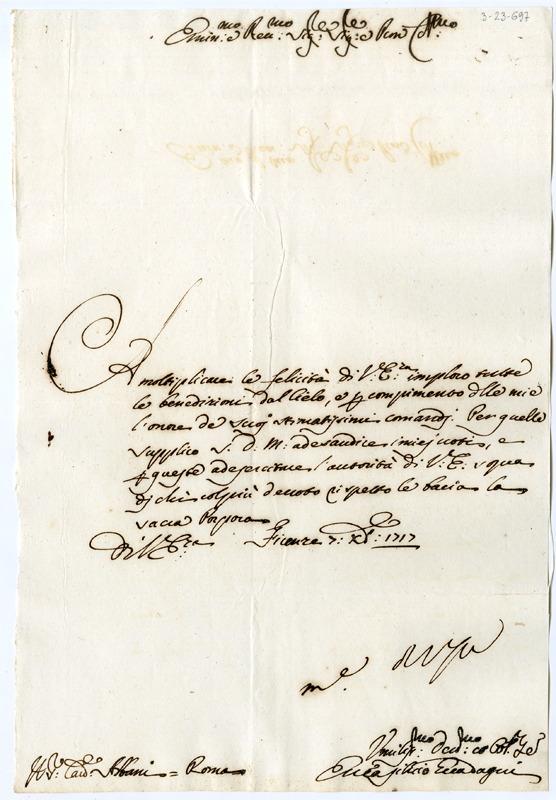 3-23-697
Emin.mo e Rev.mo Sig.re Sig.re e Pron Col.mo
A moltiplicare le felicità di V.Em.ra imploro tutte
le benedizioni dal Cielo, e p compimento dlle mie
l'onore de suoi stimatissimi comandi. Per quelle
supplico S. D. M. ad esaudire i miei voti, e
p queste ad esercitare l'autorità di V.E. sopra
di chi col più devoto rispetto le bacia la
sacra Porpora
Di V.Em.ra Firenze 7: Xbre: 1717
Umilis.mo dev.mo ed Obl.
Sig.r Card.le Albani = Roma
Enea Silvio